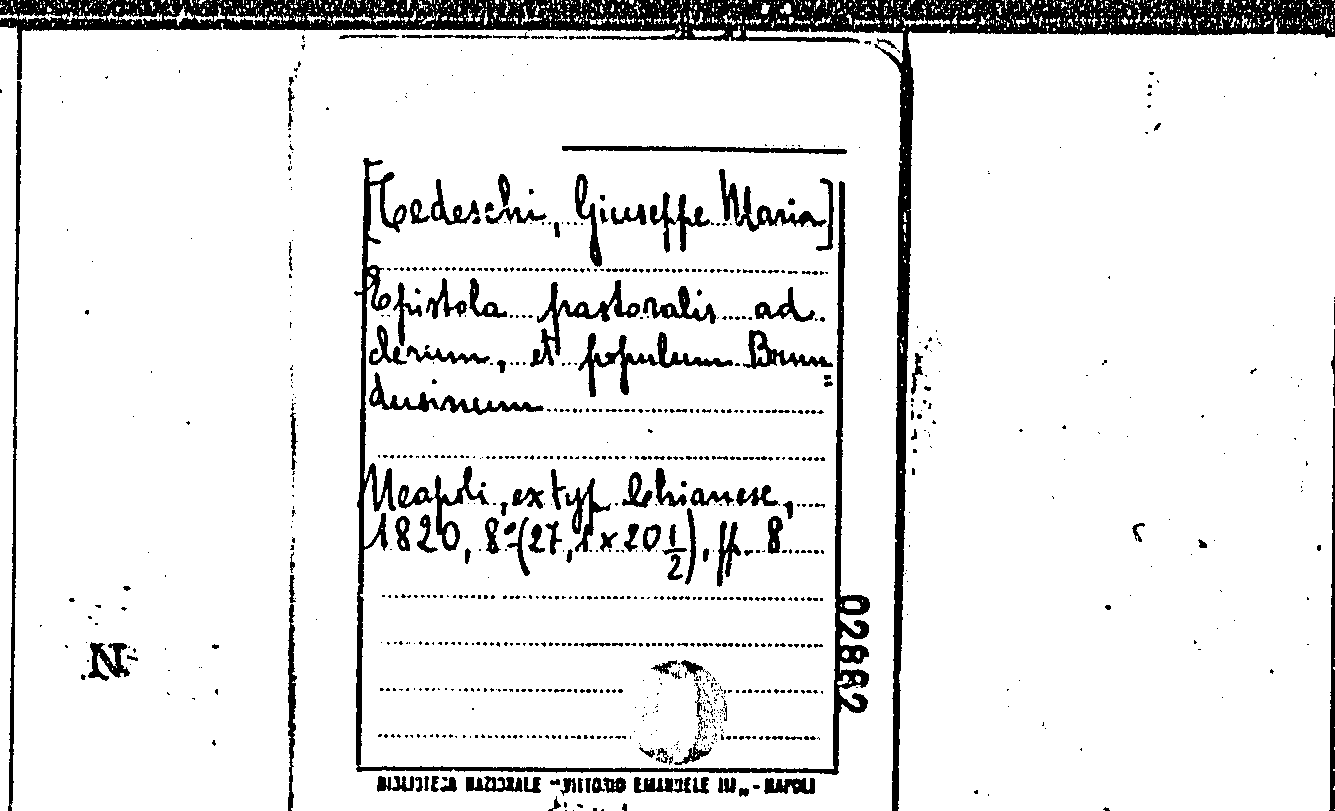 [Tedeschi, Giuseppe Maria]
Epistola pastoralis ad
clerum, et populum Brun=
dusinum
Neapoli, ex typ. Chianese,
1820, 8º (27,1 x 20 1/2), pp. 8
02882
N
BIBLIOTECA NAZIONALE "VITTORIO EMANUELE III" - NAPOLI